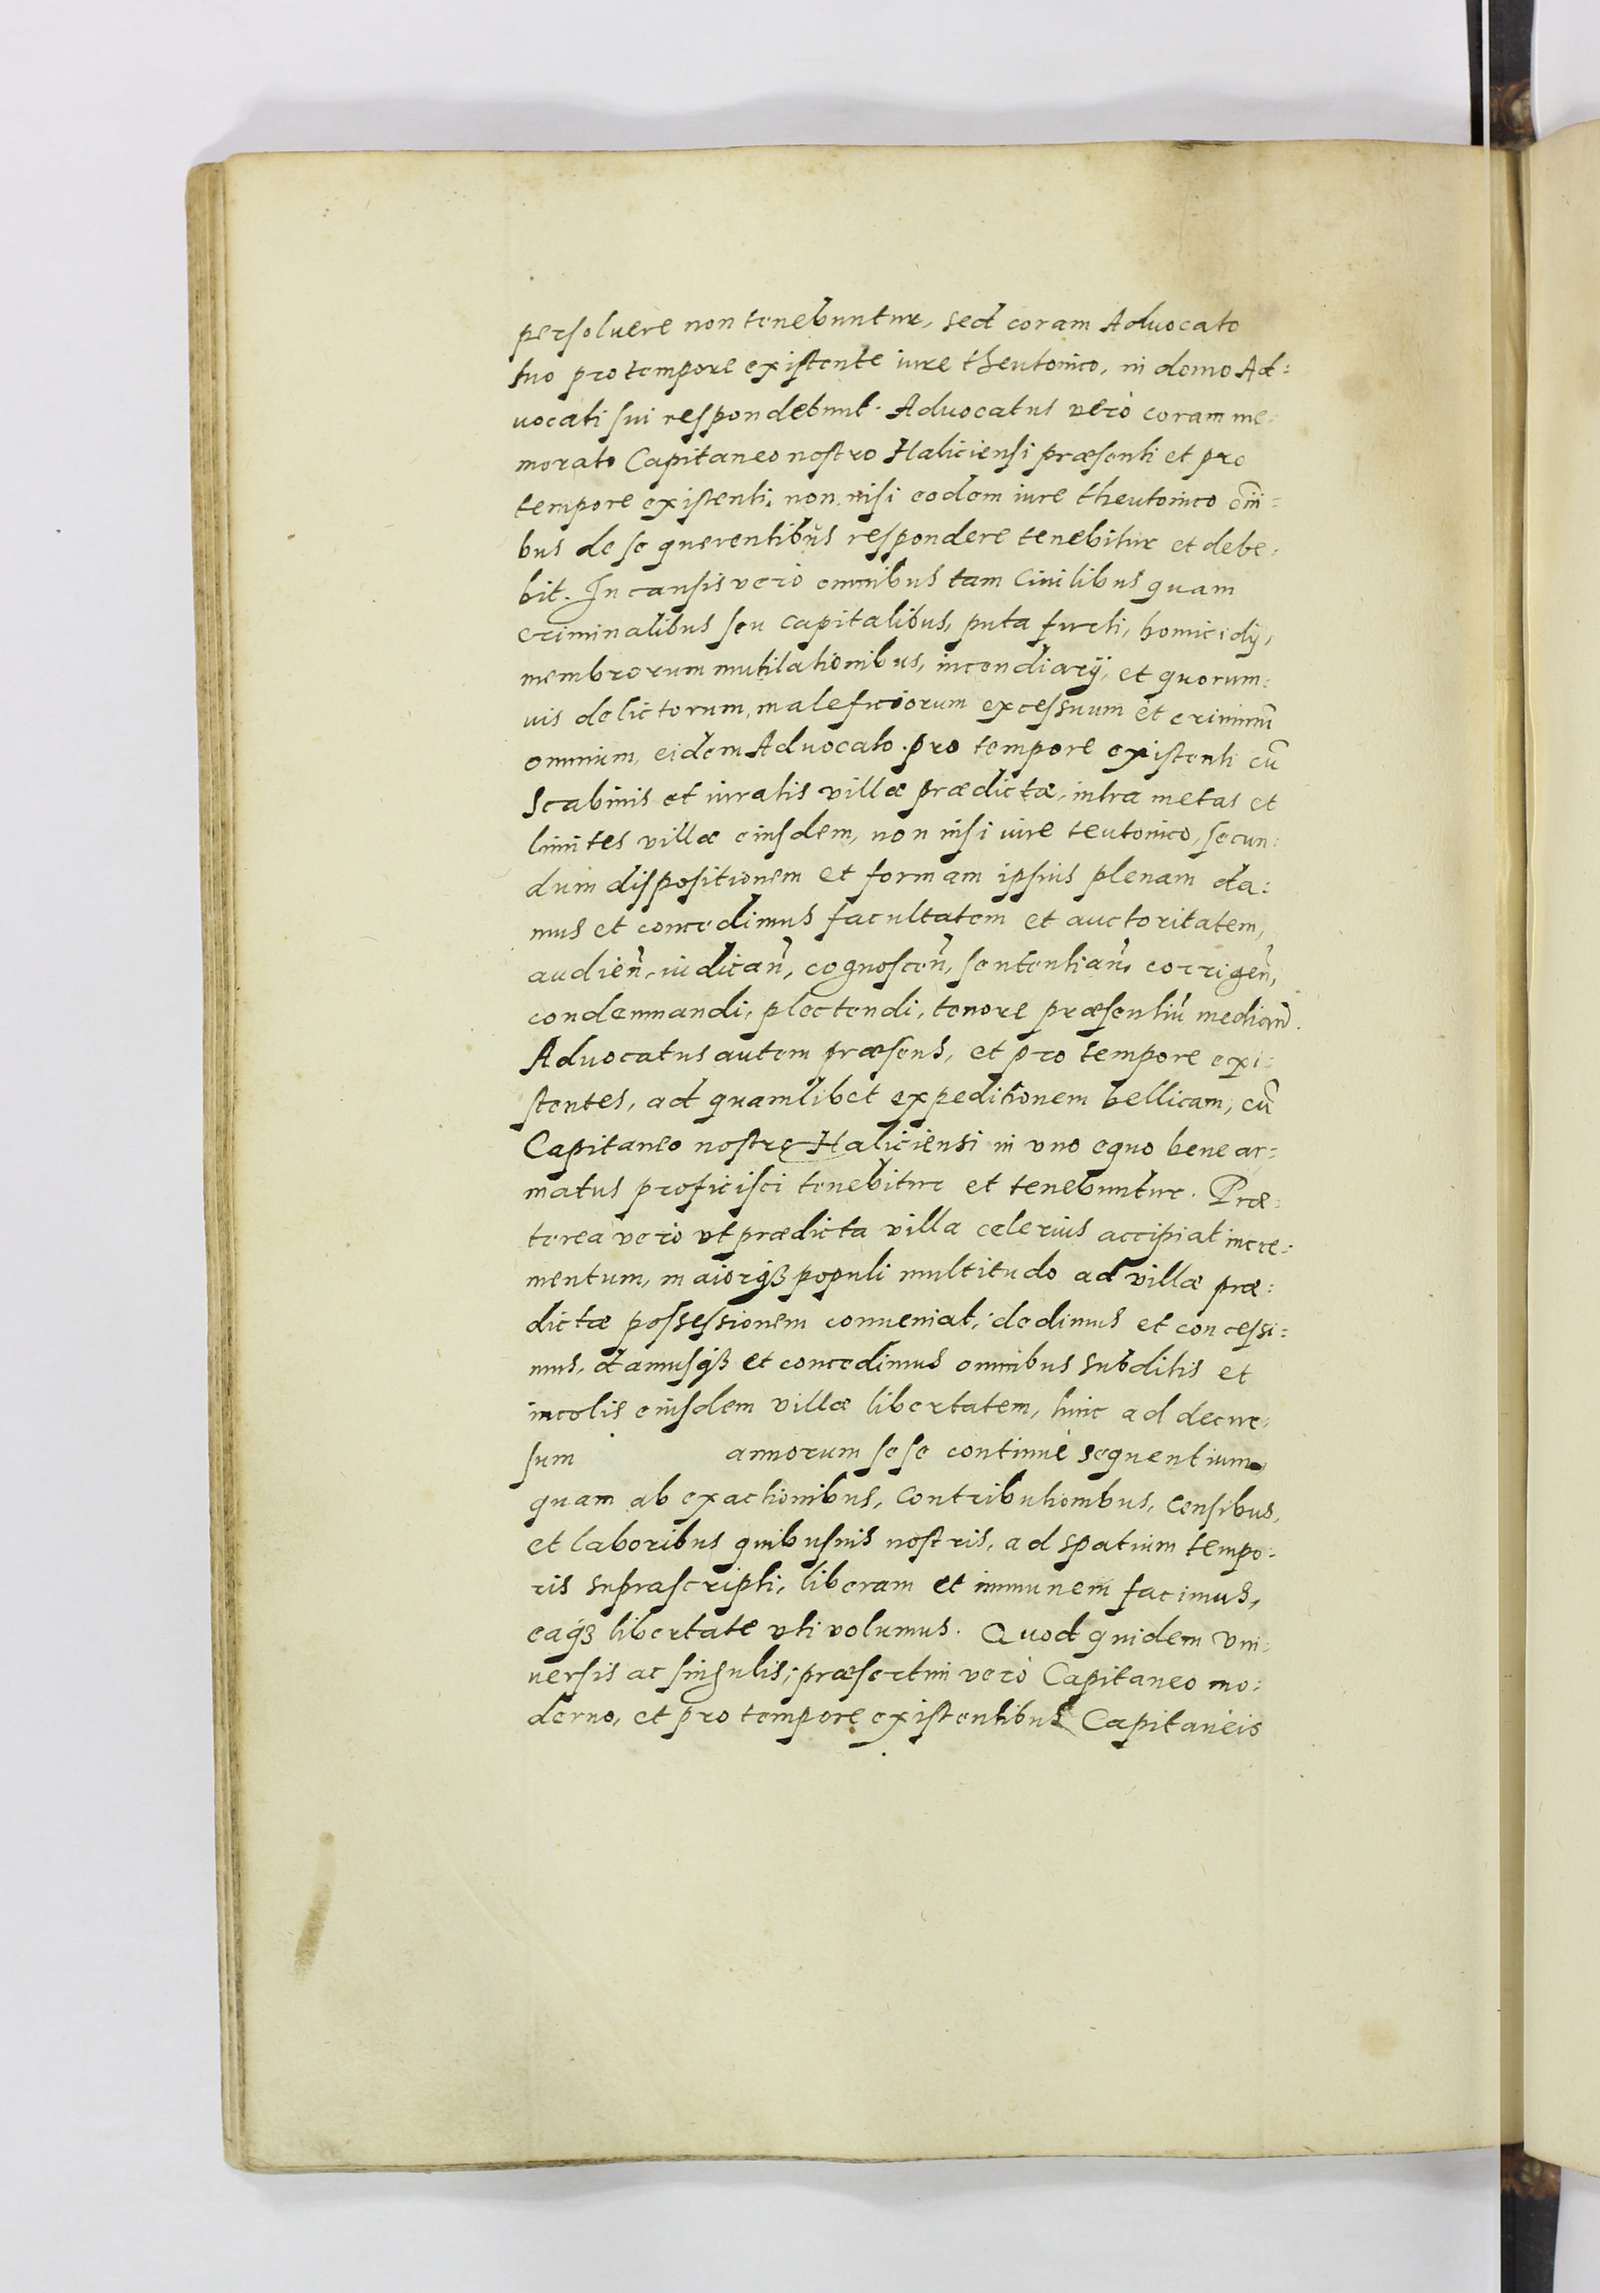 persoluere non tenebuntur, sed coram Aduocato
suo pro tempore existente iure theutonico, in domo Ad=
uocati sui respondebunt. Aduocatus verò coram me=
morato Capitaneo nostro Haliciensi præsenti et pro
tempore existenti, non nisi eodem iure theutonico om̃i=
bus de se querentibus respondere tenebitur et debe=
bit. In causis verò omnibus tam Ciuilibus quam
criminalibus seu capitalibus, puta furti, homicidij,
membrorum mutilationibus, incendiarij, et quorum=
uis delictorum, maleficiorum excessuum et criminũ
omnium, eidem Aduocato pro tempore existenti cũ
Scabinis et iuratis villæ prædictæ, intra metas et
limites villæ eiusdem, non nisi iure teutonico, secun=
dum dispositionem et formam ipsius plenam da=
mus et concedimus facultatem et auctoritatem,
audieñ, iudicañ, cognosceñ, sententiañ, corrigeñ,
condemnandi, plectendi, tenore præsentiũ mediañ.
Aduocatus autem præsens, et pro tempore exi=
stentes, ad quamlibet expeditionem bellicam, cũ
Capitaneo nostro Haliciensi in vno equo bene ar=
matus proficisci tenebitur et tenebuntur. Præ=
terea verò vt prædicta villa celerius accipiat incre=
mentum, maiorqȝ populi multitudo ad villæ præ=
dictæ possessionem conueniat, dedimus et concessi=
mus, damusqȝ et concedimus omnibus subditis et
incolis eiusdem villæ libertatem, hinc ad decur=
sum annorum sese continuè sequentium
quam ab exactionibus, contributionibus, censibus,
et laboribus quibusuis nostris, ad spatium tempo=
ris suprascripti, liberam et immunem facimus,
eaqȝ libertate vti volumus. Quod quidem vni=
uersis ac singulis, præsertim verò Capitaneo mo=
derno, et pro tempore existentibus Capitaneis